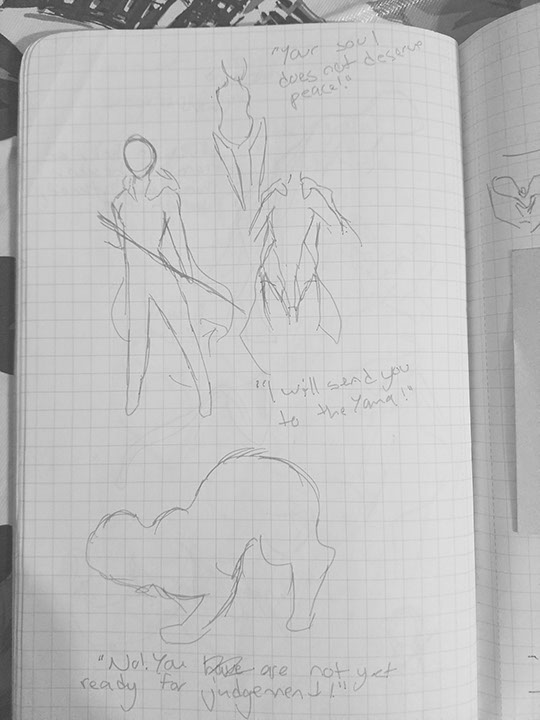 "Your soul
does not deserve
peace!"
"I will send you
to the Yama!"
"No! You are not yet
ready for judgement!"